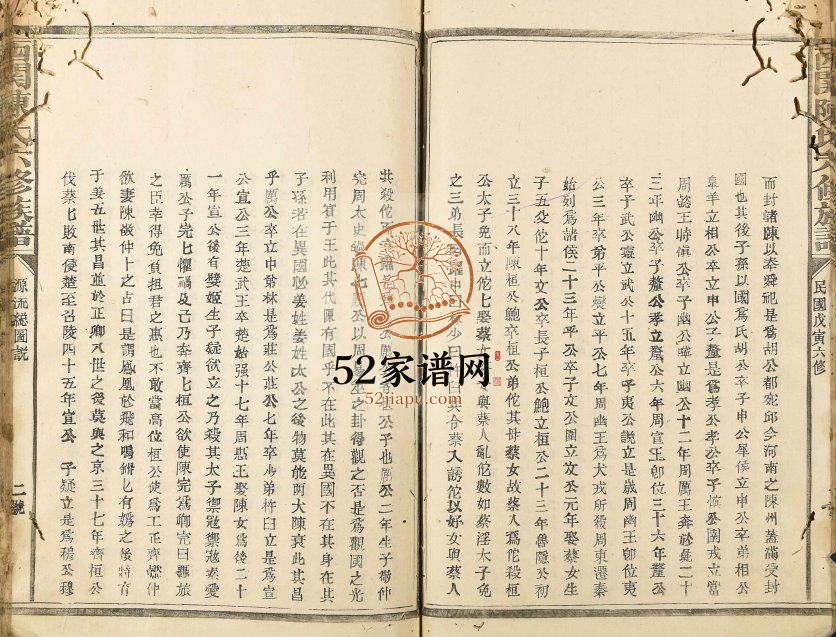 西關陳氏六修族譜
民國戊寅六修
而封諸陳以奉舜祀是爲胡公都宛邱今河南之陳州蓋滿受封
國也其後子孫以國爲氏胡公卒子申公犀侯立申公卒弟相公
臯羊立相公卒立申公子是爲孝公孝公卒子慎公圉戎立當
周懿王時慎公卒子幽公立幽公十二年周厲王奔於彘二十
三年幽公卒子釐公孝立釐公六年周宣王卽位三十六年釐公
卒子武公靈立武公十五年卒子夷公說立是歲周幽王卽位夷
公三年卒弟平公燮立平公七年周幽王爲犬戎所殺周東遷秦
始列爲諸侯二十三年平公卒子文公圉立文公元年娶蔡女生
子五父佗十年文公卒長子桓公鮑立桓公二十三年魯隱公初
立三十八年陳桓公鮑卒桓公弟佗其母蔡女故蔡人爲佗殺桓
公太子免而立佗佗娶蔡女與蔡人亂佗數如蔡淫太子免
之三弟長曰躍中曰少曰共令蔡人誘佗以好女與蔡人
共殺佗公也厲公二年生子敬仲
完周太史過陳以周易筮之卦得觀之否是爲觀國之光
利用賓于王此其代陳有國乎不在此其在異國不在其身在其
子孫若在異國必姜姓姜姓太公之後物莫能兩大陳衰此其昌
乎厲公卒立中弟林是爲莊公莊公七年卒少弟杵臼立是爲宣
公宣公三年楚武王卒楚始强十七年周惠王娶陳女爲後二十
一年宣公後有嬖姬生子欵欲立之乃殺其太子禦寇禦寇素愛
厲公子完完懼禍及己乃奔齊齊桓公欲使陳完爲卿完曰羈旅
之臣幸得免負担君之惠也不敢當高位桓公使爲工正齊懿仲
欲妻陳敬仲卜之占曰是謂鳳凰於飛和鳴鏘鏘有嬀之後將育
于姜五世其昌並於正卿八世之後莫與之京三十七年齊桓公
伐蔡蔡敗南侵楚至召陵四十五年宣公卒子欵立是爲穆公穆
西關陳氏六修族譜
源流總圖說
二號
52家谱网
52jiapu.com